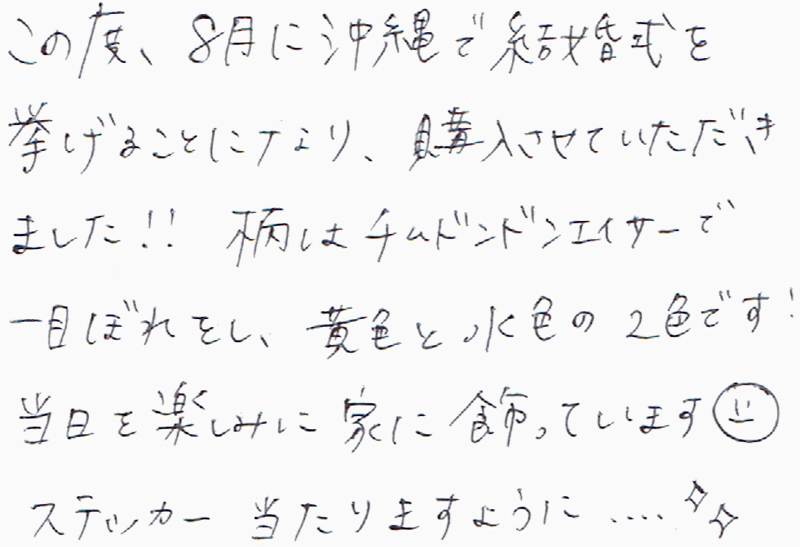 この度、8月に沖縄で結婚式を
挙げることになり、購入させていただき
ました!! 柄はチムドンドンエイサーで
一目ぼれをし、黄色と水色の2色です!
当日を楽しみに家に飾っています
ステッカー当たりますように....